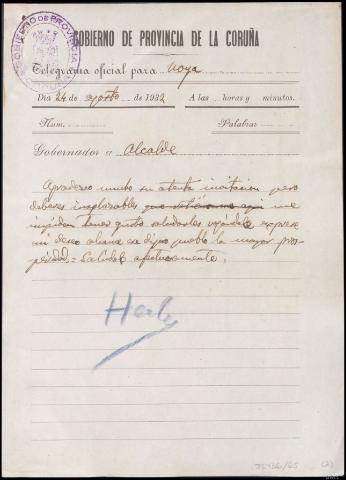 GOBIERNO DE PROVINCIA
GOBIERNO DE PROVINCIA DE LA CORUÑA
Telegrama oficial para Noya
Día 24 de agosto de 1932 A las horas y minutos.
Núm. Palabras
Gobernador a Alcalde
Agradezco mucho su atenta invitación pero
deberes inaplazables que me
impiden tener gusto saludarles rogándole exprese
mi deseo alcance ese digno pueblo la mayor pros-
peridad = Salúdole afectuosamente.
(2)